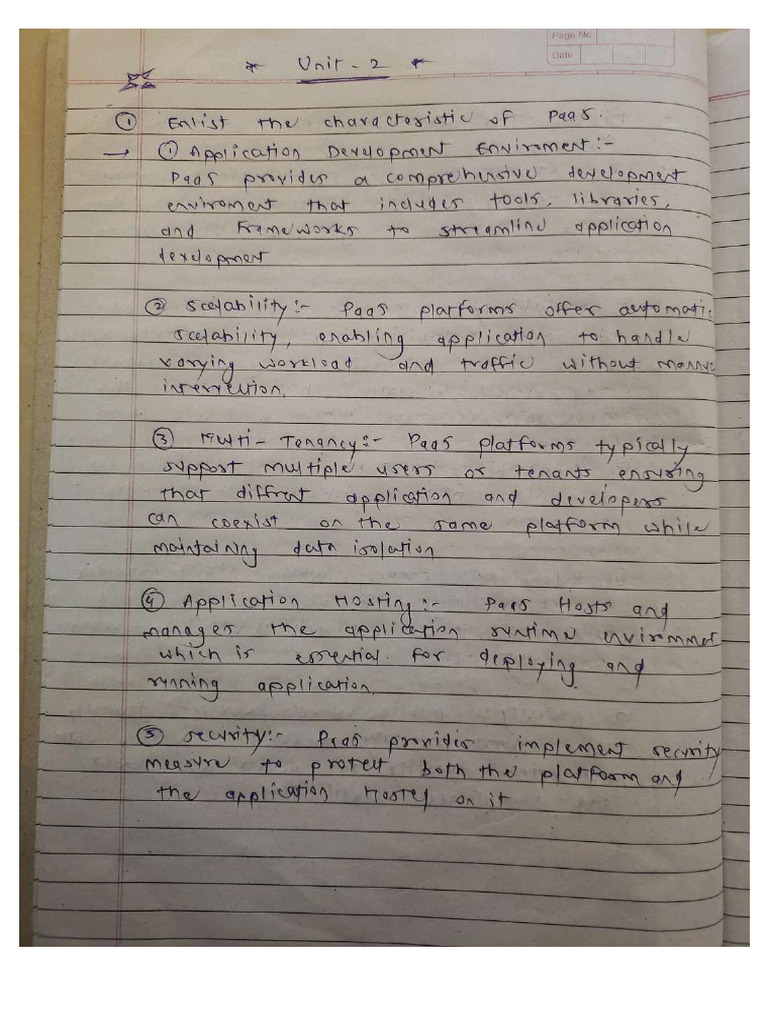 Page No
Date
* Unit - 2 *
① Enlist the characteristic of PaaS.
→ ① Application Development Enviroment:-
PaaS provides a comprehensive development
enviroment that includes tools, libraries,
and Frameworks to streamline application
development
② Scalability:- PaaS platforms offer automatic
scalability, enabling application to handle
varying workload and traffic without
intervention.
③ Multi-Tenancy:- PaaS platforms typically
support multiple users or tenants ensuring
that diffrent application and developers
can coexist on the same platform while
maintaining data isolation
④ Application Hosting:- PaaS Hosts and
manages the application runtime
which is essential for deploying and
running application.
⑤ Security:- PaaS provides implement security
measure to protect both the platform and
the application Hosted on it